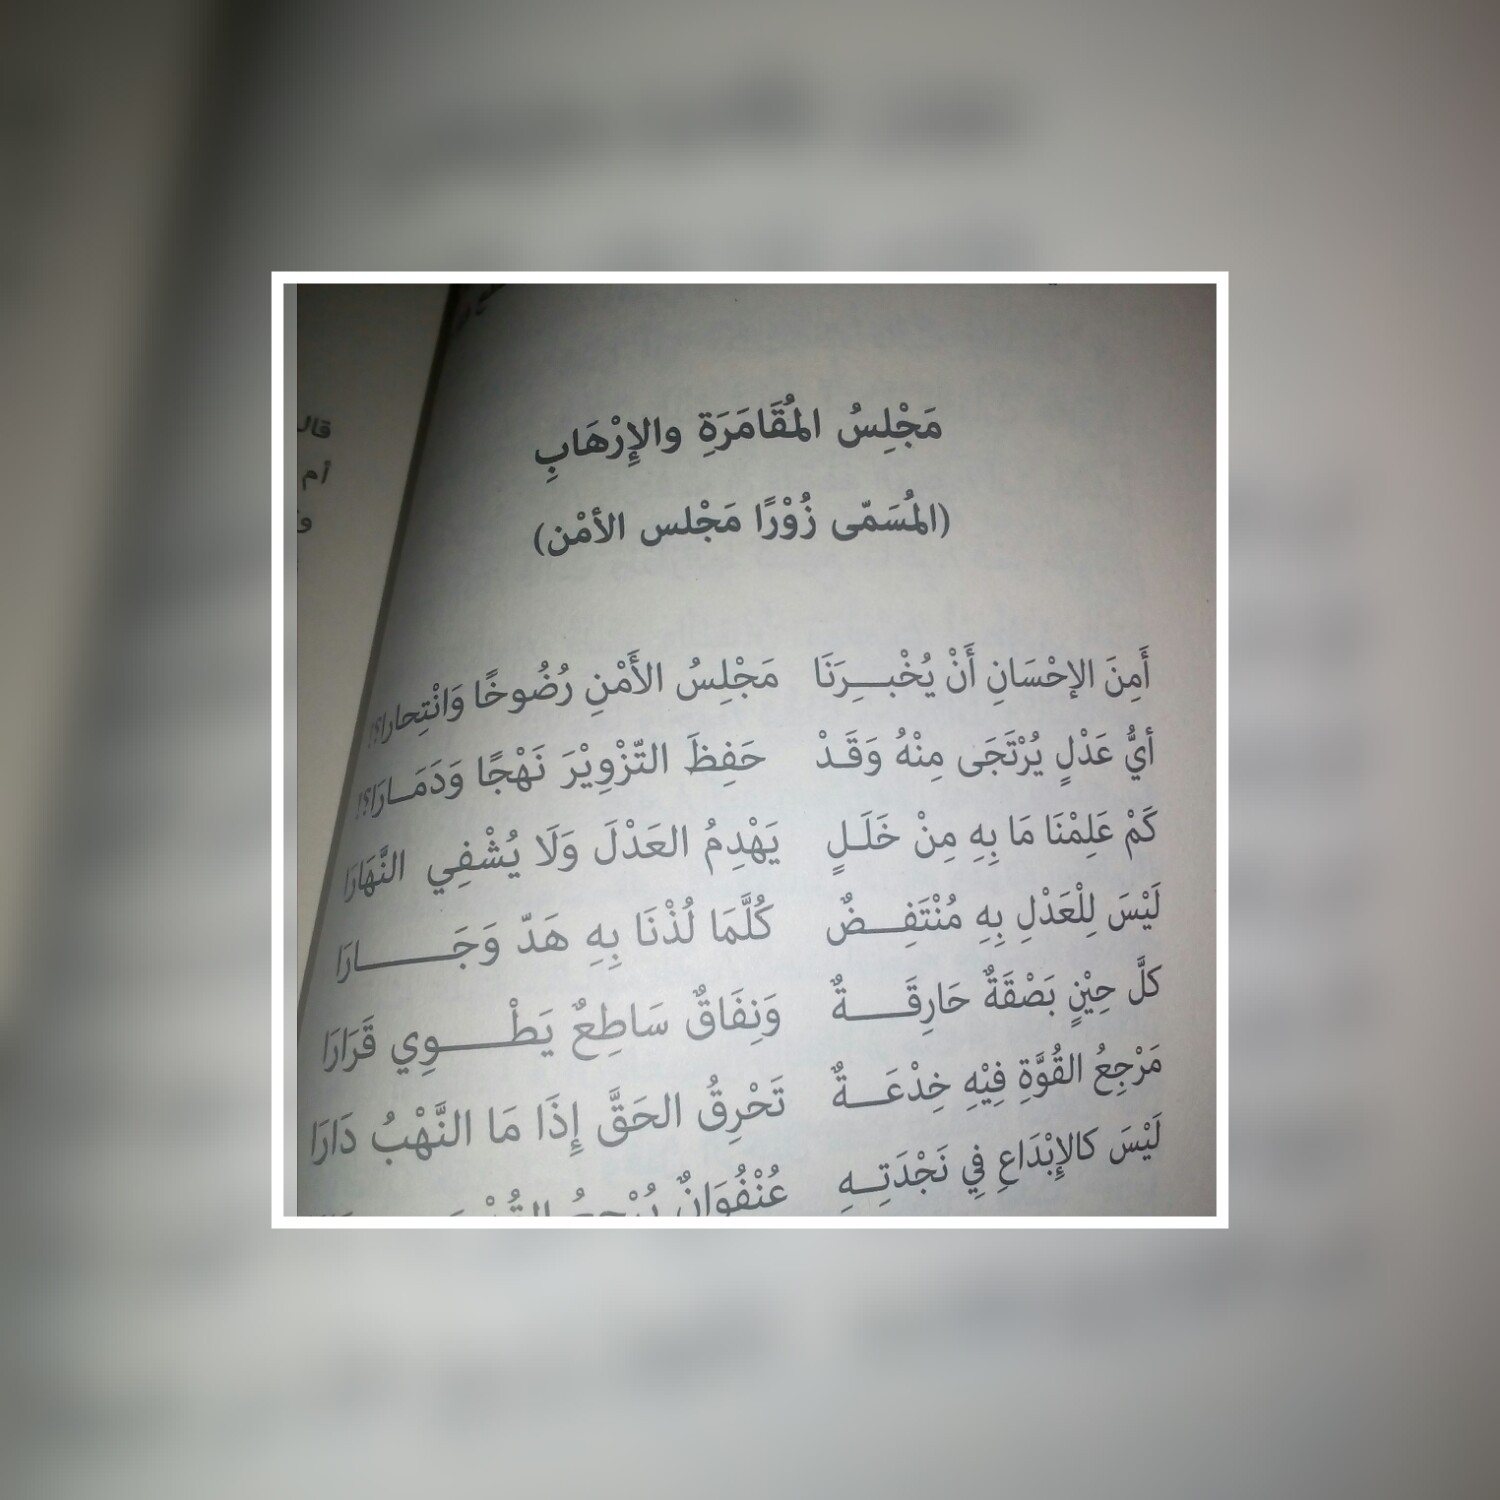 مَجْلِسُ المُقَامَرَةِ والإِرْهَابِ
(المُسَمّى زُوْرًا مَجْلس الأمْن)
أَمِنَ الإحْسَانِ أَنْ يُخْبِرَنَا مَجْلِسُ الأَمْنِ رُضُوخًا وَانْتِحارا؟!
أيُّ عَدْلٍ يُرْتَجَى مِنْهُ وَقَدْ حَفِظَ التّزْوِيْرَ نَهْجًا وَدَمَارَا؟!
كَمْ عَلِمْنَا مَا بِهِ مِنْ خَلَلٍ يَهْدِمُ العَدْلَ وَلَا يُشْفِي النَّهَارَا
لَيْسَ لِلْعَدْلِ بِهِ مُنْتَفِضٌ كُلَّمَا لُذْنَا بِهِ هَدّ وَجَارَا
كلَّ حِيْنٍ بَصْقَةٌ حَارِقَةٌ وَنِفَاقٌ سَاطِعٌ يَطْوِي قَرَارَا
مَرْجِعُ القُوَّةِ فِيْهِ خِدْعَةٌ تَحْرِقُ الحَقَّ إِذَا مَا النَّهْبُ دَارَا
لَيْسَ كالإِبْدَاعِ فِي نَجْدَتِهِ عُنْفُوَانٌ
قال
أم